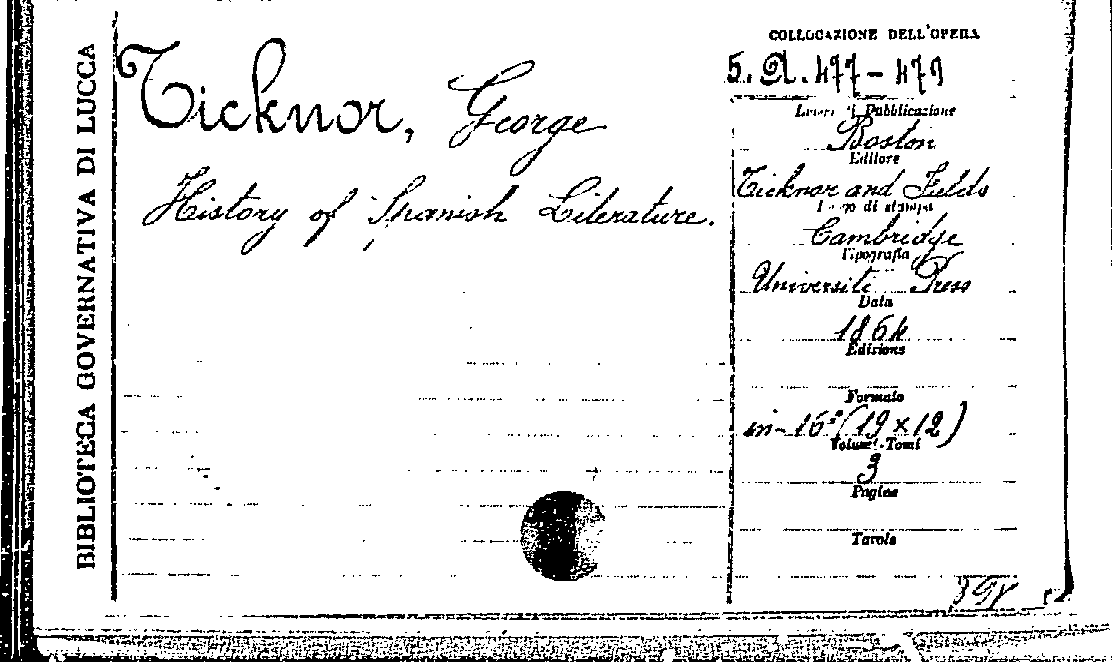 BIBLIOTECA GOVERNATIVA DI LUCCA
Ticknor, George
History of Spanish Literature.
COLLOCAZIONE DELL'OPERA
5. A. 477 - 479
Luogo di Pubblicazione
Boston
Editore
Ticknor and Fields
Luogo di stampa
Cambridge
Tipografia
Universiti Press
Data
1864
Edizione
Formato
in-16° (19 x 12)
Volumi-Tomi
3
Pagine
Tavole